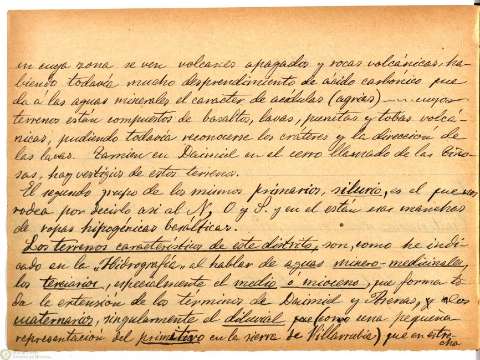 en cuya zona se ven volcanes apagados y rocas volcánicas, ha-
biendo todavía mucho desprendimiento de acido carbónico que
da á las aguas minerales el caracter de acidulas (agrias) cuyos
terrenos están compuestos de basaltos, lavas, pumitas y tobas volcá-
nicas, pudiendo todavía reconocerse los cráteres y la dirección de
las lavas. Tamien en Daimiel en el cerro llamado de las
hay vestigios de estos terrenos.
El segundo grupo de los mismos primarios, silurio, es el que nos
rodea por decirlo asi al N, O y S. y en el están esas manchas
de ropas hipogenicas basalticas.
Los terrenos caracteristicos de este distrito, son, como he indi-
cado en la "Hidrografía" al hablar de aguas minero-medicinales,
los terciarios, especialmente el medio ó mioceno, que forma to-
da la extensión de los terminos de Daimiel y Arenas, y los
cuaternarios, singularmente el diluvial que como una pequeña
representación del primitivo en la sierra de Villarrubia, que en estre-
cha